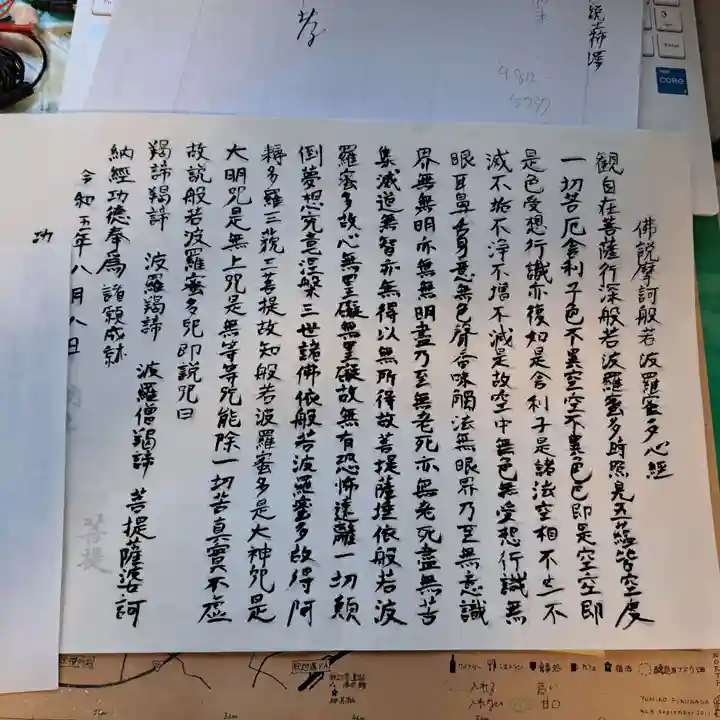 佛説摩訶般若波羅蜜多心經
観自在菩薩行深般若波羅蜜多時照見五蘊皆空度
一切苦厄舎利子色不異空空不異色色即是空空即
是色受想行識亦復如是舎利子是諸法空相不生不
滅不垢不浄不増不減是故空中無色無受想行識無
眼耳鼻舌身意無色聲香味觸法無眼界乃至無意識
界無無明亦無無明盡乃至無老死亦無老死盡無苦
集滅道無智亦無得以無所得故菩提薩埵依般若波
羅蜜多故心無罣礙無罣礙故無有恐怖遠離一切顛
倒夢想究竟涅槃三世諸佛依般若波羅蜜多故得阿
耨多羅三藐三菩提故知般若波羅蜜多是大神咒是
大明咒是無上咒是無等等咒能除一切苦真實不虚
故説般若波羅蜜多咒即説咒曰
羯諦羯諦 波羅羯諦 波羅僧羯諦 菩提薩婆訶
納經功徳奉為諸願成就
令和五年八月八日
菩提
功
CORE
3
レストラン
カフェ
宿泊
入れる
入れない
高い
甘口
YUMIKO FUKUNAGA